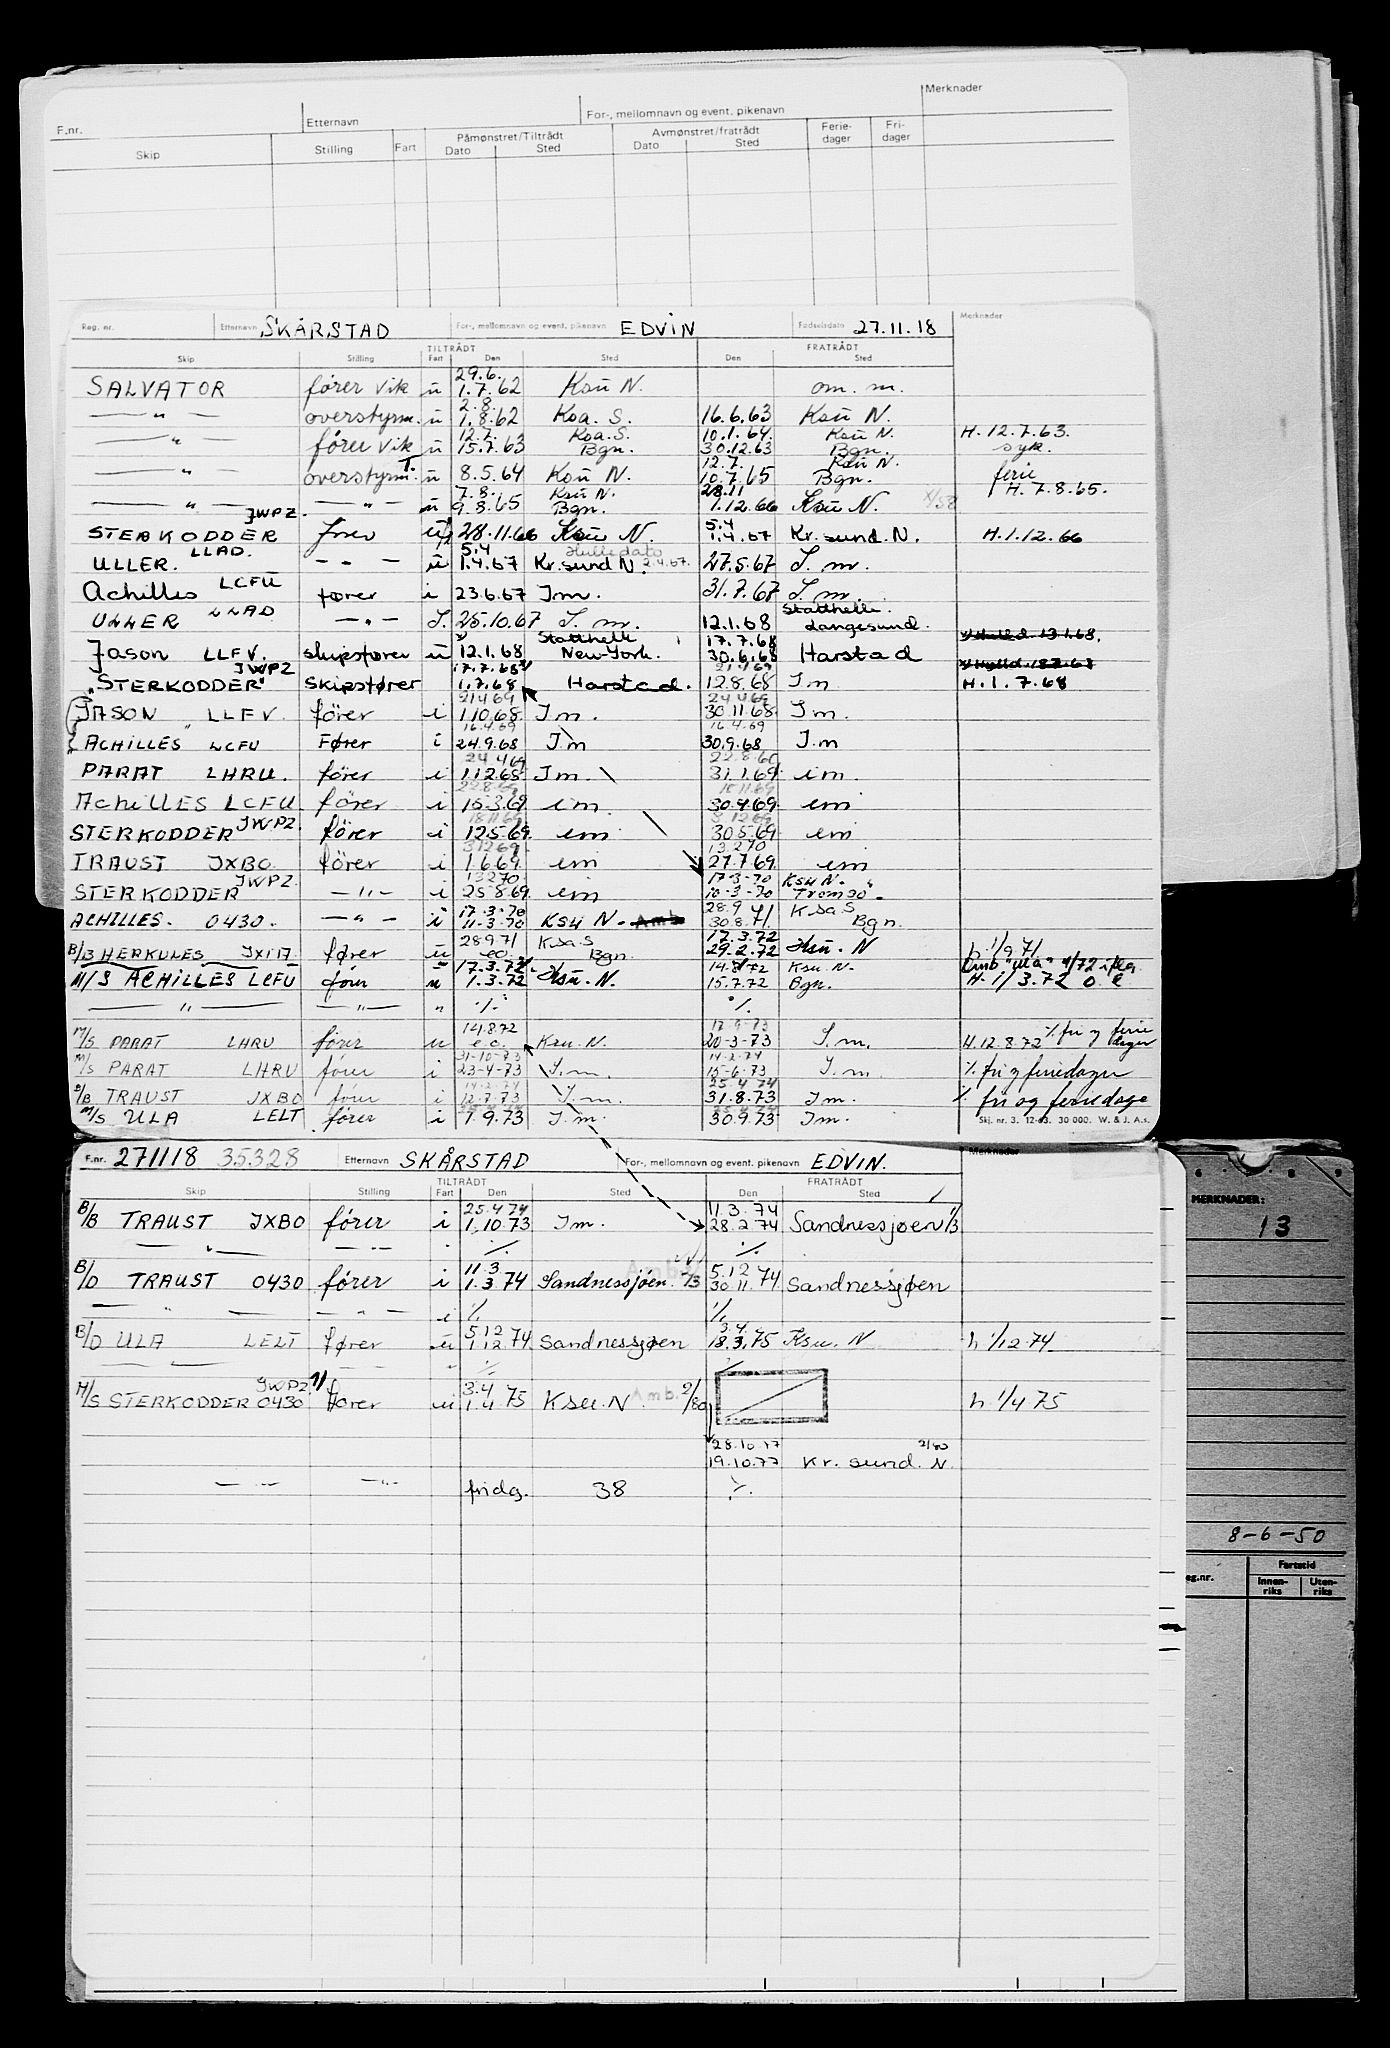 F.nr. Etternavn For-, mellomnavn og event. pikenavn Merknader
Skip Stilling Fart Påmønstret/Tiltrådt Avmønstret/fratrådt Ferie-dager Fri-dager
Dato Sted Dato Sted
Reg. nr. Etternavn SKÅRSTAD For-, mellomnavn og event. pikenavn EDVIN Fødselsdato 27.11.18 Merknader
TILTRÅDT FRATRÅDT
Skip Stilling Fart Den Sted Den Sted
29.6.
SALVATOR fører vik u 1.7.62 Ksu N. om. m.
2.8.
—"— overstyrm. u 1.8.62 Koa. S. 16.6.63 Ksu N.
12.7. Koa.S. 10.1.64. Ksu N. H. 12.7.63.
—"— fører vik u 15.7.63 Bgn. 30.12.63 Bgn. syk.
12.7. Ksu N.
—"— overstyrm. u 8.5.64 Ksu N. 10.7.65 Bgn. ferie
7.8. Ksu N. 28.11 H. 7.8.65.
—"— —"— u 9.8.65 Bgn. 1.12.66 Ksu N.
JWPZ. 5.4
STERKODDER fører u 28.11.66 Ksu N. 1.4.67 Kr.sund.N. H.1.12.66
LLAD. 5.4 Hulledato
ULLER. —"— u 1.4.67 Kr.sund N. 2.4.67. 27.5.67 I. m.
Achilles LCFU fører i 23.6.67 I m. 31.7.67 I. m.
Statthelle.
ULLER LLAD —"— I. 25.10.67 I. m. 12.1.68 Langesund.
Statthelle 17.7.68
Jason LLFV. skipsfører u 12.1.68 New-York. 30.6.68 Harstad
JWPZ 17.7.68 21.4.69
"STERKODDER" skipsfører 1.7.68 Harstad. 12.8.68 I m H.1.7.68
21.4.69 24.4.69
JASON LLFV. fører i 1.10.68. I m. 30.11.68. I m.
16.4.69 16.4.69
"ACHILLES" LCFU Fører i 24.9.68 I.m 30.9.68 I.m
24.4.69 22.8.69
PARAT LHRU. fører i 1.12.68 I m. 31.1.69. im.
22.8.69 18.11.69
Achilles LCFU fører i 15.3.69 im 30.4.69. im
18.11.69 3.12.69
STERKODDER JWPZ. fører i 12.5.69. im 30.5.69. im
3.12.69 13.2.70
TRAUST JXBO. fører i 1.6.69. im 27.7.69. im
JWPZ. 13.2.70 17-3-70 Ksu N.
STERKODDER —"— i 25.8.69. im 10-3-70 Tromsø.
17-3-70 28.9.71 Ksa S
ACHILLES. 0430. —"— i 11-3-70 KSU N. 30.8.71 Bgn.
28.9.71 Ksa S 17.3.72 h. 1/9 71
B/B HERKULES JXIA fører u e.o. Bgn. 29.2.72 Ksu. N
17.3.72 Ksu. N.
M/S ACHILLES LCFU fører u 1.3.72 Ksu. N. 15.7.72 Bgn. H. 1/3.72
—"— —"— " ./. ./.
14.8.72 17-9-73
M/S PARAT LHRU fører u e.o. Ksu.N. 20-3-73 I.m. H.12.8.72 ./. fri og feriedager
31-10-73 14-2-74
M/S PARAT LHRU fører i 23-4-73 I.m. 15-6-73 I.m. ./. fri og feriedager
14-2-74 25.4.74
B/B TRAUST JXBO fører i 12.7.73 I.m. 31.8.73 I m. ./. fri og feriedage
M/S ULA LELT fører i 1.9.73 I.m. 30.9.73 I m.
Skj. nr. 3. 12-63. 30 000. W. & J. A.s.
F.nr. 271118 35328 Etternavn SKÅRSTAD For-, mellomnavn og event. pikenavn EDVIN. Merknader
TILTRÅDT FRATRÅDT
Skip Stilling Fart Den Sted Den Sted
25.4.74 11.3.74
B/B TRAUST JXBO fører i 1.10.73 I m. 28.2.74 Sandnessjøen 1/3
—"— —"— ./. ./.
11.3 5.12
B/D TRAUST 0430 fører i 1.3.74 Sandnessjøen. 1/3 30.11.74 Sandnessjøen
—"— —"— i ./. ./.
5.12 3.4
B/D ULA LELT fører u 1.12.74 Sandnessjøen 18.3.75 Ksu. N h 1/12.74
—"— ./. ./.
JWPZ 1/ 3.4
M/S STERKODDER 0430 fører u 1.4.75 Ksu. N Amb. 2/80 h. 1/4 75
28.10.77 2/80
19.10.77 Kr. sund. N.
—"— —"— fridg. 38 ./.
6 8 9
MERKNADER:
13
8-6-50
eg.nr. Fartstid
Innen-riks Uten-riks